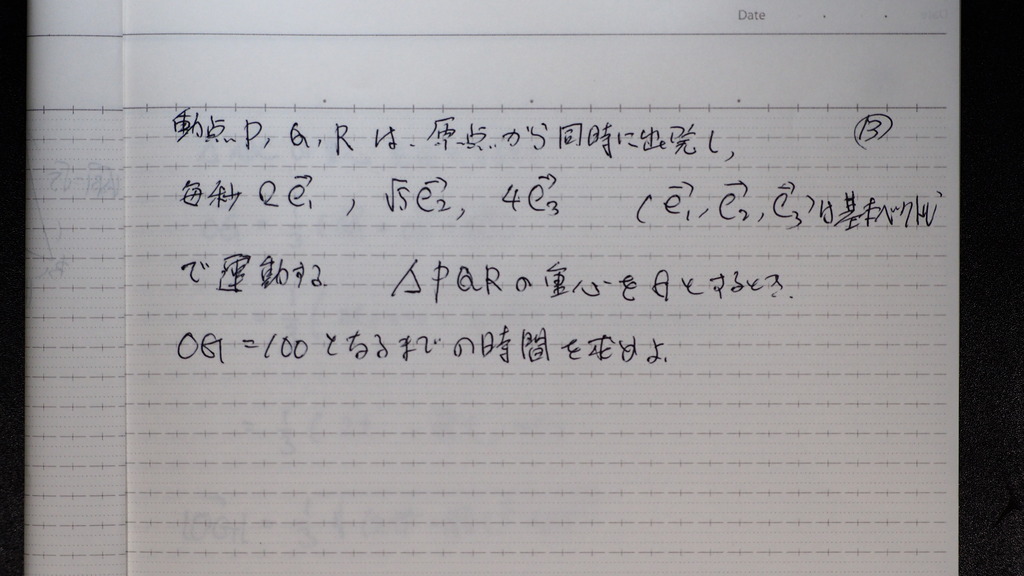 Date
動点P, Q, R は、原点から同時に出発し, ⑬
毎秒 2e₁→, √5e₂→, 4e₃→ (e₁→, e₂→, e₃→)は基本ベクトル
で運動する △PQRの重心をGとするとき.
OG=100となるまでの時間を求めよ.